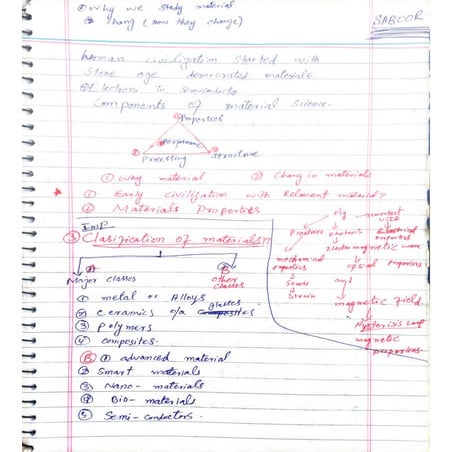 ① Why we study material
② Chang (how they change)
SABOOR
Human civilization started with
Stone age democrated materials.
Electrons to Semiconducts
Components of material Science.
Properties
Performance
Processing
Structure
① Why material
② Chang in materials
① Early civilization with Relevent material?
② Materials Properties
IMP
③ Clasification of materials??
Ⓐ
Major classes
Ⓑ
other
classes
① metal or Alloys
② Ceramics o/a glasses
③ Polymers
④ Composites.
Ⓑ ① advanced material
② Smart materials
③ Nano-materials
④ Bio-materials
⑤ Semi-conductors.
Pressure
photons
Electrical
properties
mechanical
properties
electromagnetic wave
optical Properties
Stress
and
Strain
magnetic field.
Hysterisis Loop
magnetic
properties.